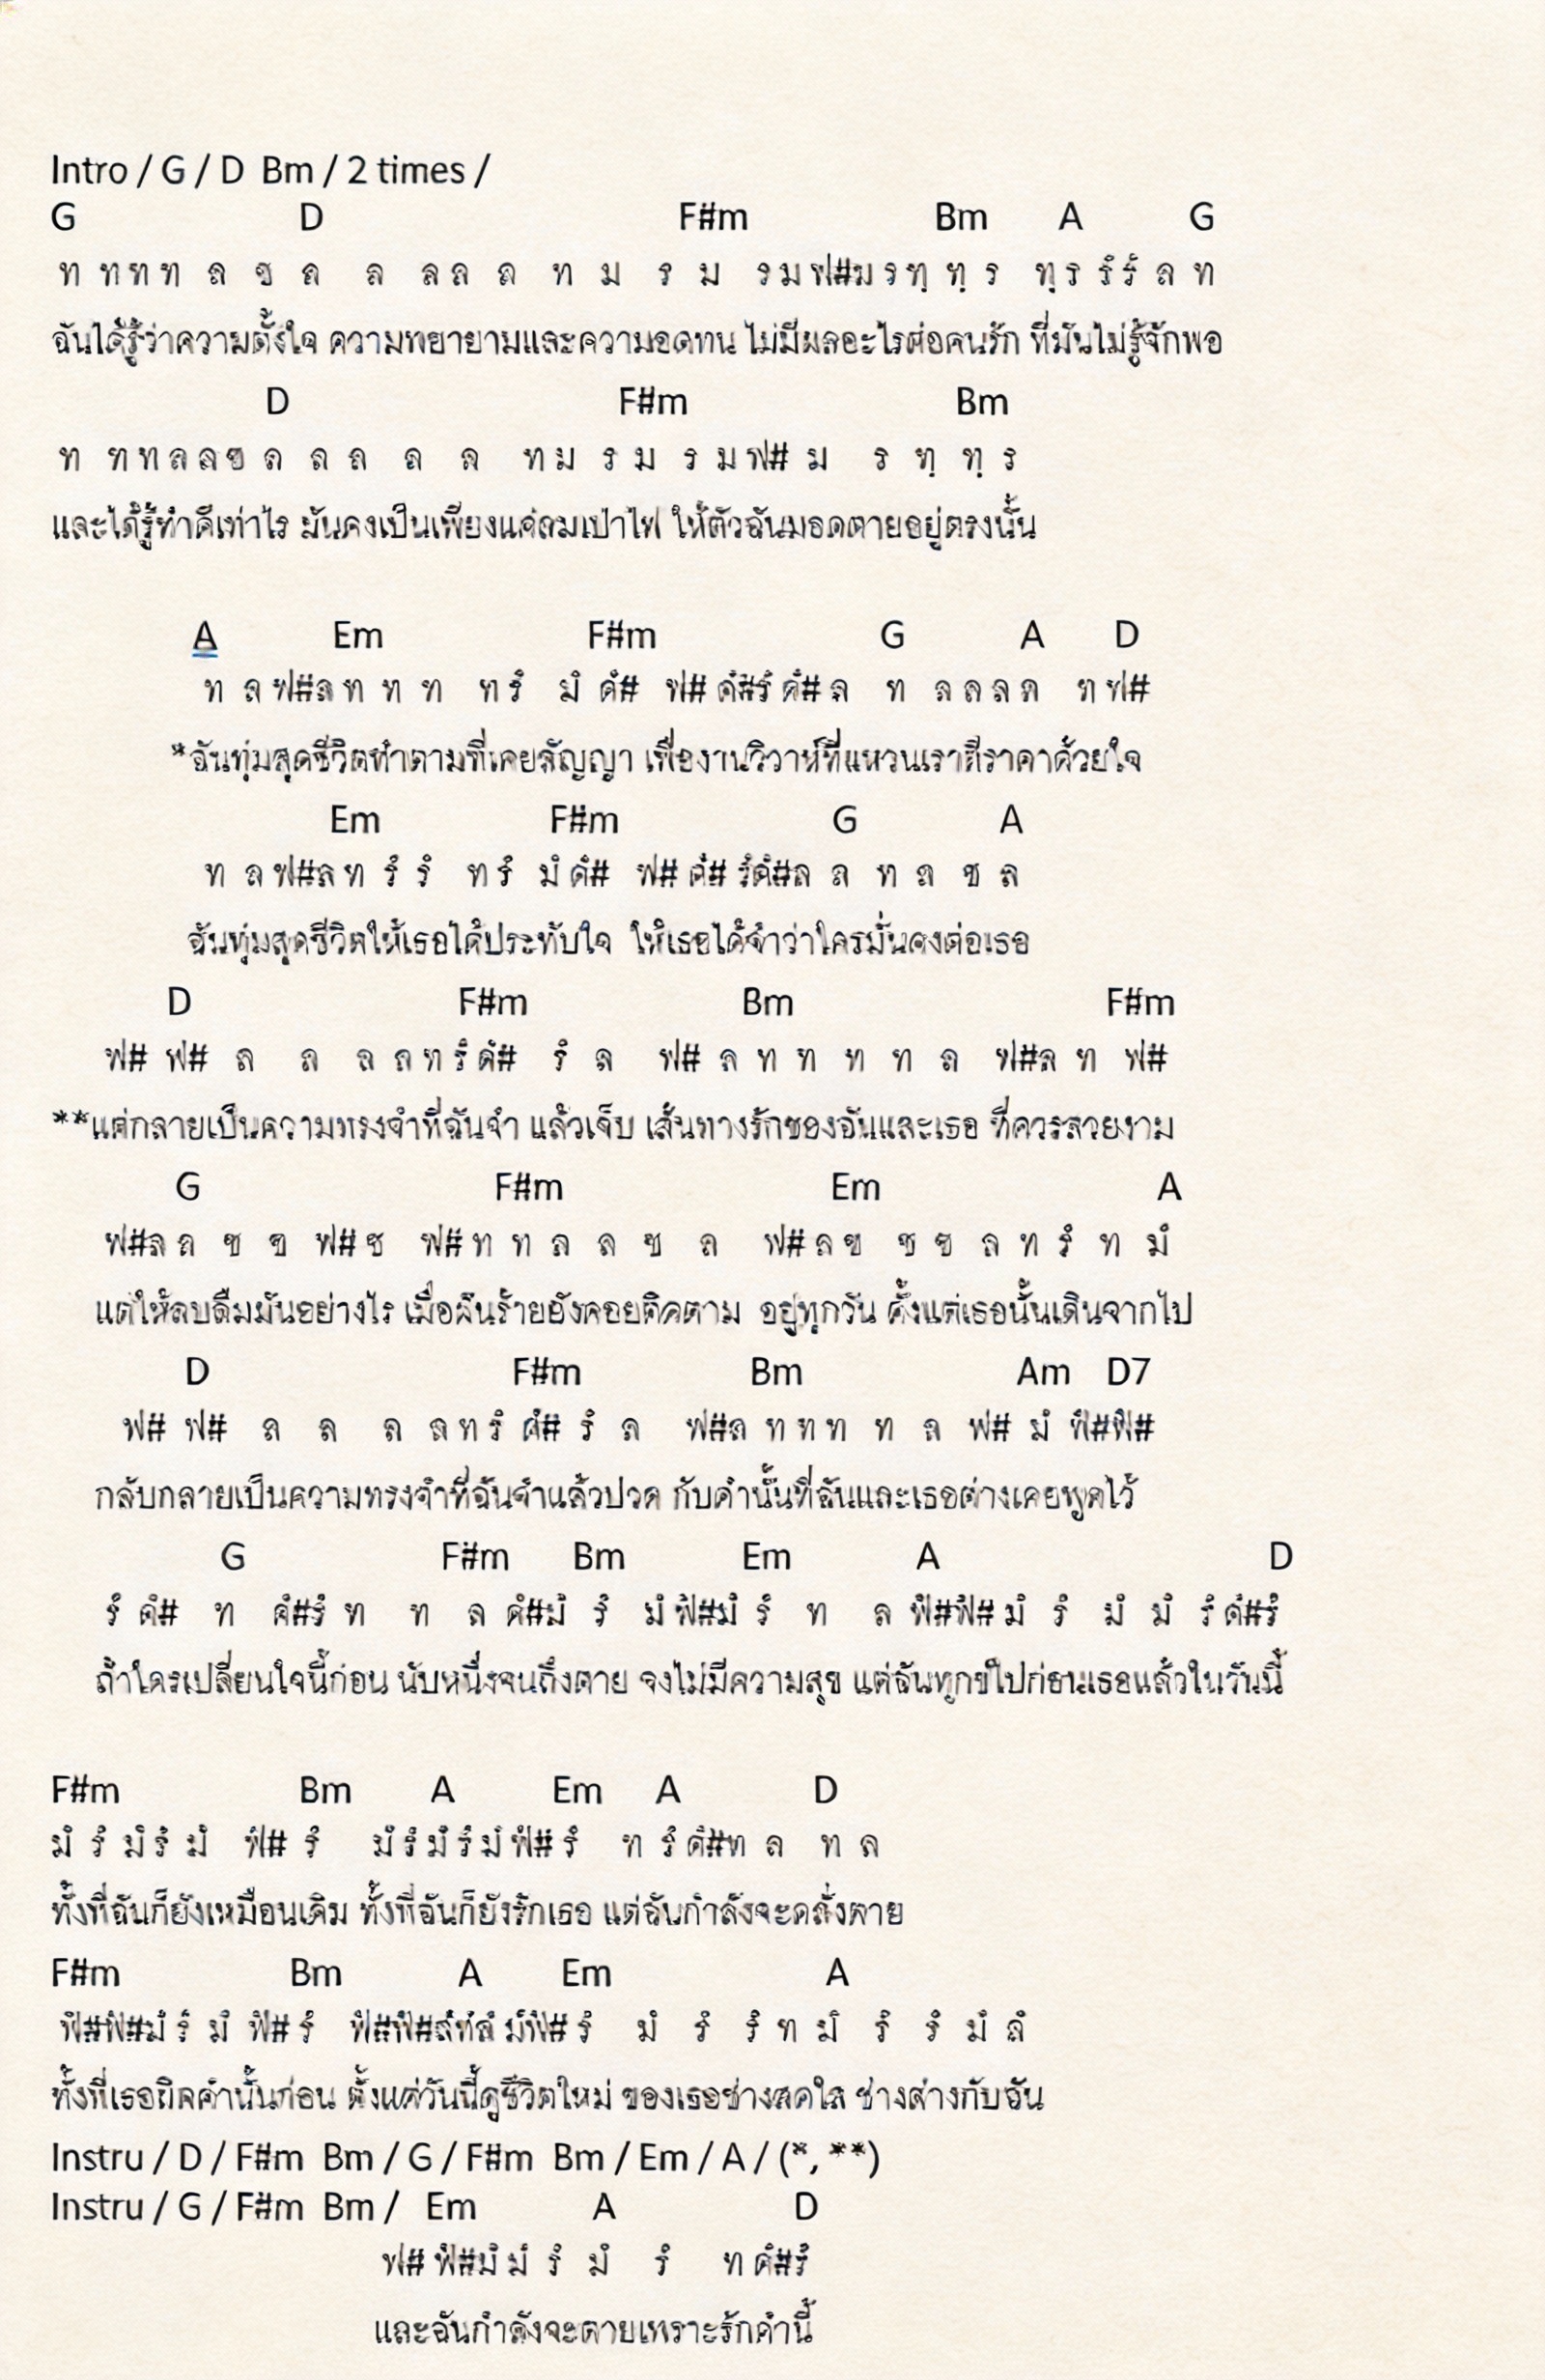 Intro / G / D  Bm / 2 times /
G D F#m Bm A G
ท ททท ล ช ล ล ลล ล ท ม ร ม รมฟ#มรทฺ ทฺ ร ทฺร ร๎ร๎ ล ท
ฉันได้รู้ว่าความตั้งใจ ความพยายามและความอดทน ไม่มีผลอะไรต่อคนรัก ที่มันไม่รู้จักพอ
D F#m Bm
ท ททลลชล ล ล ล ล ทม ร ม ร มฟ# ม ร ทฺ ทฺ ร
และได้รู้ทำดีเท่าไร มันคงเป็นเพียงแค่ลมเป่าไฟ ให้ตัวฉันมอดตายอยู่ตรงนั้น
A Em F#m G A D
ท ลฟ#ลท ท ท ทร๎ ม๎ ด๎# ฟ# ด๎#ร๎ ด๎# ล ท ลลลล ทฟ#
*ฉันทุ่มสุดชีวิตทำตามที่เคยสัญญา เพื่องานวิวาห์ที่แหวนเราตีราคาด้วยใจ
Em F#m G A
ท ลฟ#ลท ร๎ ร๎ ทร๎ ม๎ด๎# ฟ# ด๎# ร๎ด๎#ล ล ท ล ช ล
ฉันทุ่มสุดชีวิตให้เธอได้ประทับใจ  ให้เธอได้จำว่าใครมั่นคงต่อเธอ
D F#m Bm F#m
ฟ# ฟ# ล ล ล ลทร๎ด๎# ร๎ ล ฟ# ล ท ท ท ท ล ฟ#ล ท ฟ#
**แต่กลายเป็นความทรงจำที่ฉันจำ แล้วเจ็บ เส้นทางรักของฉันและเธอ ที่ควรสวยงาม
G F#m Em A
ฟ#ลล ช ช ฟ#ช ฟ#ท ท ล ล ช ล ฟ#ลช ชช ล ท ร๎ ท ม๎
แต่ให้ลบลืมมันอย่างไร เมื่อฝันร้ายยังคอยติดตาม  อยู่ทุกวัน ตั้งแต่เธอนั้นเดินจากไป
D F#m Bm Am D7
ฟ# ฟ# ล ล ล ลทร๎ ด๎# ร๎ ล ฟ#ล ททท ท ล ฟ# ม๎ ฟ๎#ฟ๎#
กลับกลายเป็นความทรงจำที่ฉันจำแล้วปวด กับคำนั้นที่ฉันและเธอต่างเคยพูดไว้
G F#m Bm Em A D
ร๎ ด๎# ท ด๎#ร๎ ท ท ล ด๎#ม๎ ร๎ ม๎ฟ๎#ม๎ ร๎ ท ล ฟ๎#ฟ๎#ม๎ ร๎ ม๎ ม๎ ร๎ด๎#ร๎
ถ้าใครเปลี่ยนใจนี้ก่อน นับหนึ่งจนถึงตาย จงไม่มีความสุข แต่ฉันทุกข์ไปก่อนเธอแล้วในวันนี้
F#m Bm A Em A D
ม๎ ร๎ ม๎ร๎ ม๎ ฟ๎# ร๎ ม๎ร๎ม๎ร๎ม๎ฟ๎#ร๎ ท ร๎ด๎#ท ล ท ล
ทั้งที่ฉันก็ยังเหมือนเดิม ทั้งที่ฉันก็ยังรักเธอ แต่ฉันกำลังจะคลั่งตาย
F#m Bm A Em A
ฟ๎#ฟ๎#ม๎ ร๎ ม๎ ฟ๎# ร๎ ฟ๎#ฟ๎#ล๎ท๎ล๎ ม๎ฟ๎#ร๎ ม๎ ร๎ ร๎ ท ม๎ ร๎ ร๎ ม๎ ล๎
ทั้งที่เธอผิดคำนั้นก่อน ตั้งแต่วันนี้ดูชีวิตใหม่ ของเธอช่างสดใส ช่างต่างกับฉัน
Instru / D / F#m  Bm / G / F#m  Bm / Em / A / (*, **)
Instru / G / F#m  Bm /   Em A D
ฟ# ฟ๎#ม๎ม๎ ร๎ ม๎ ร๎ ท ด๎#ร๎
และฉันกำลังจะตายเพราะรักคำนี้